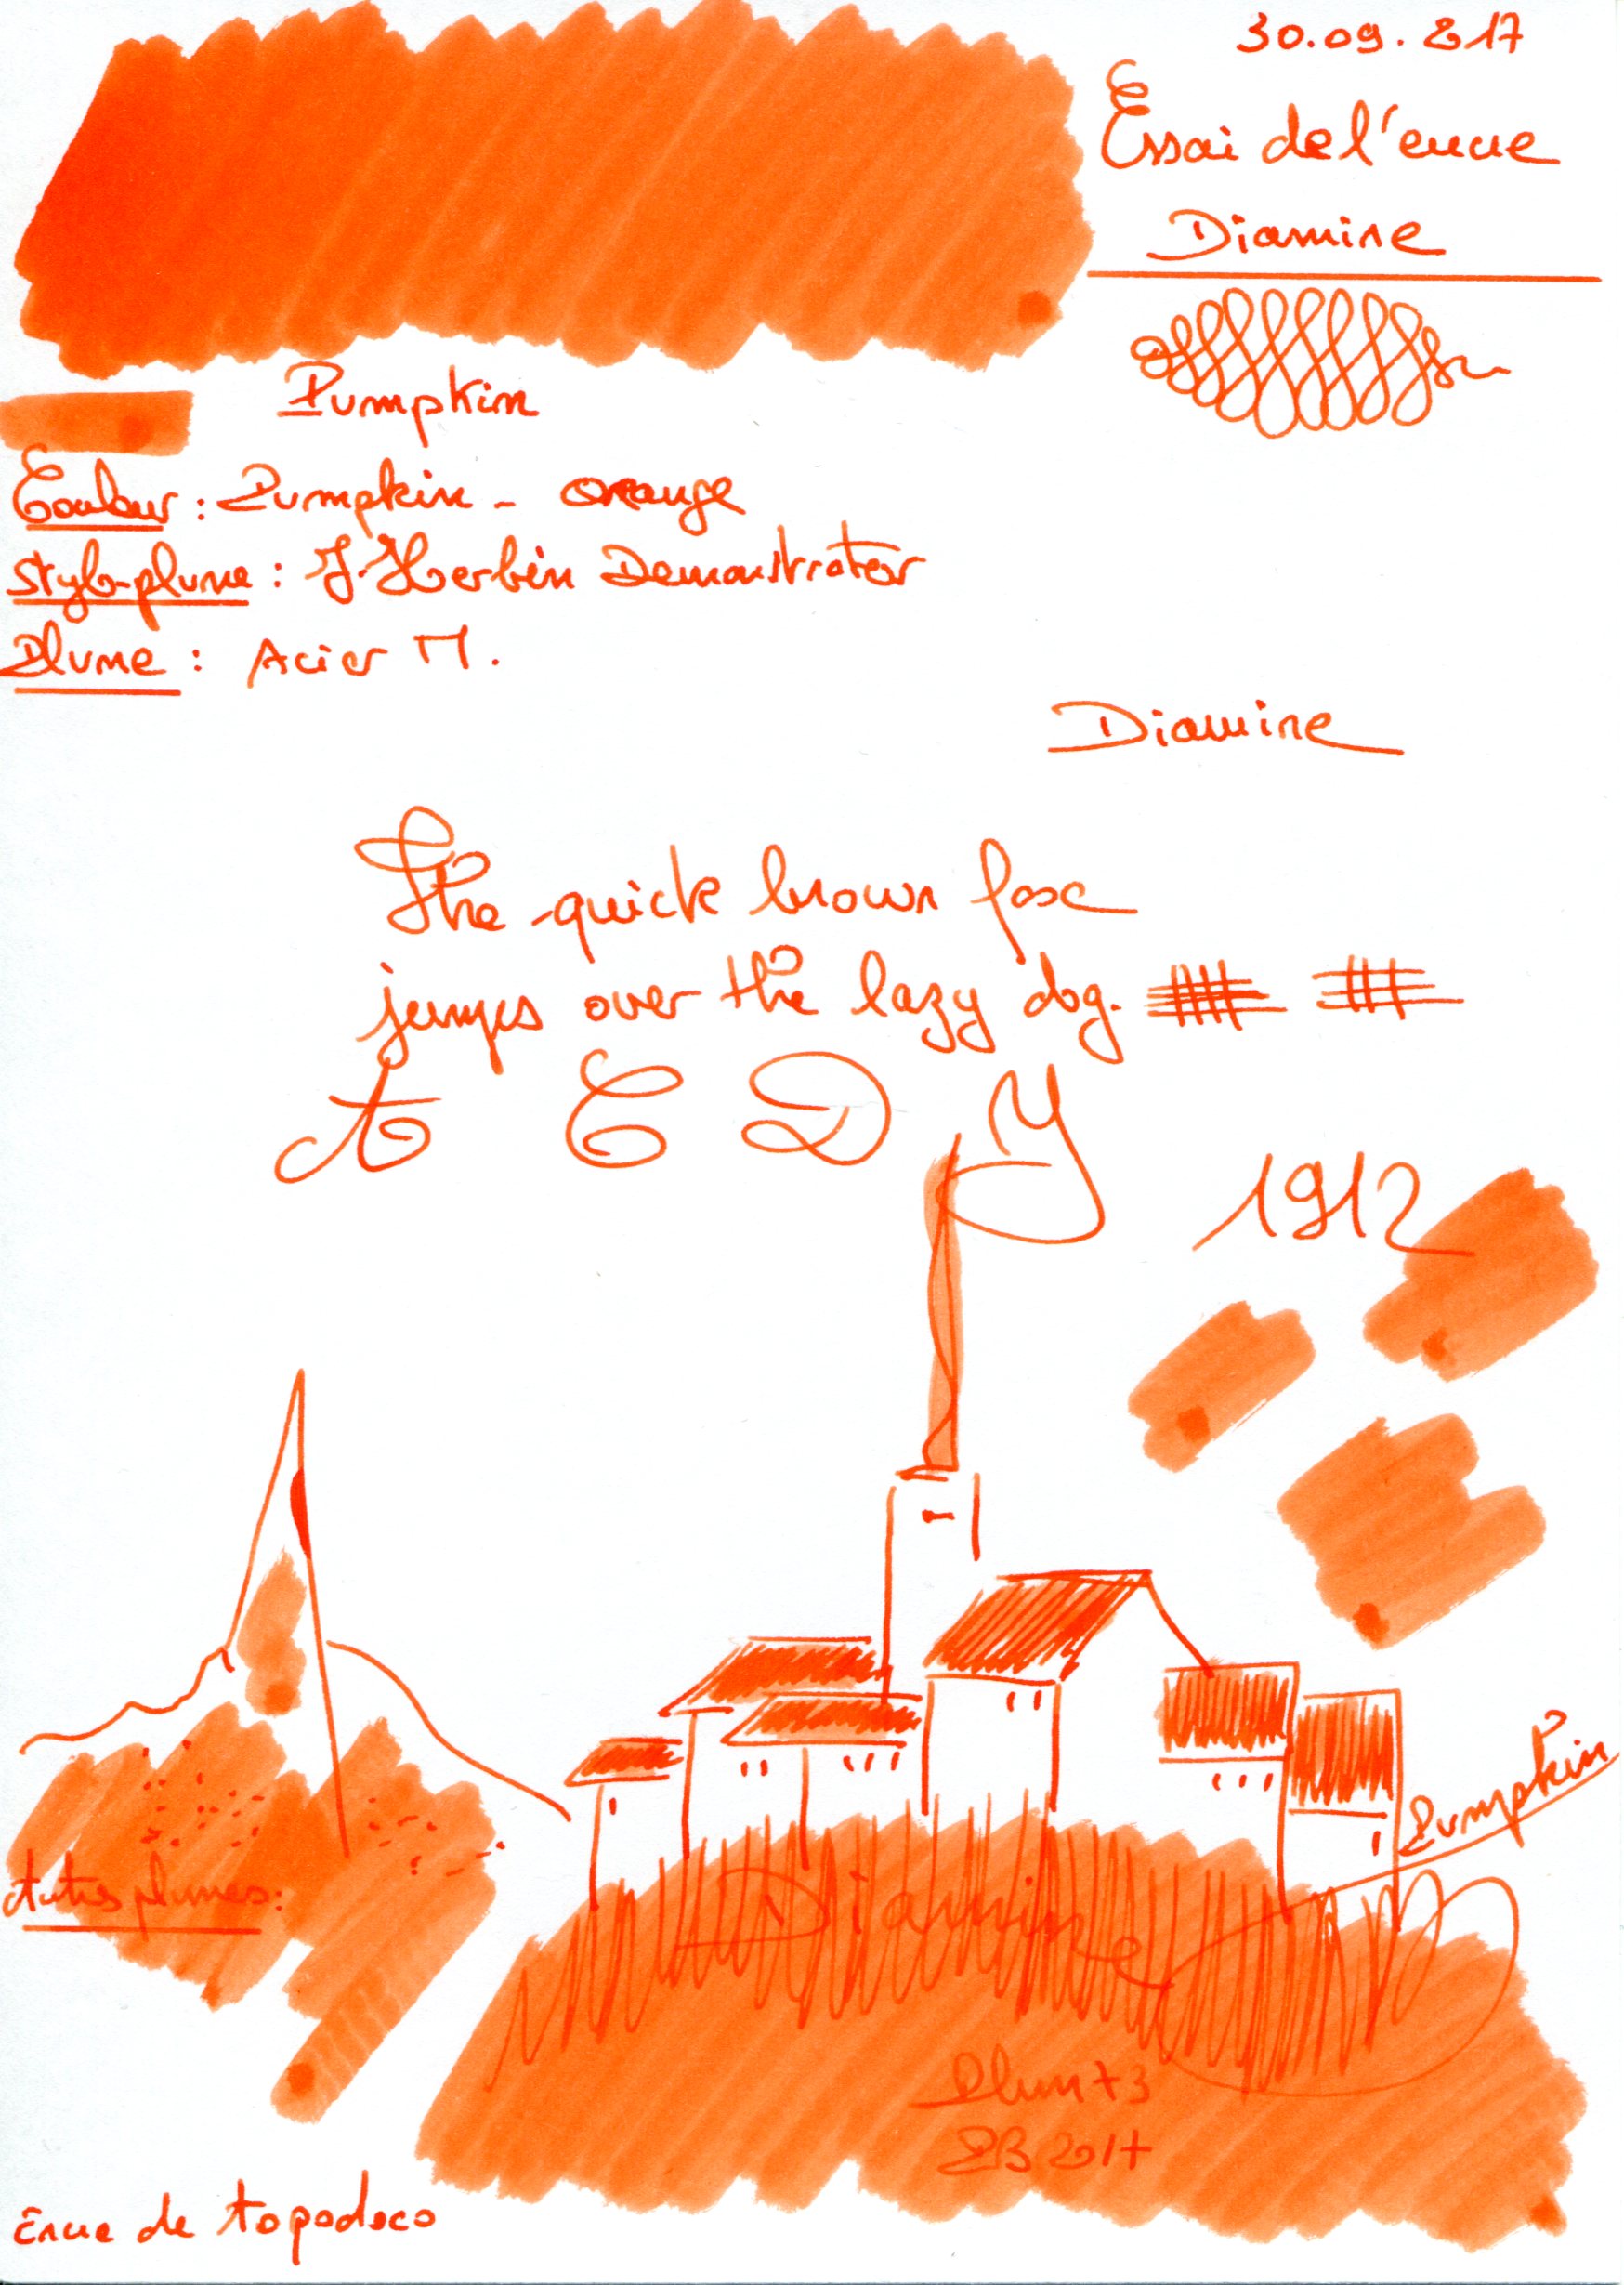 30.09.2017
Essai de l'encre
Diamine
Pumpkin
Couleur : Pumpkin - orange
Stylo-plume : J. Herbin Demonstrator
Plume : Acier M.
Diamine
The quick brown fox
jumps over the lazy dog.
A C D Y
1912
Pumpkin
Autres plumes :
Diamine
Plum73
PB 2017
Encre de topodoco